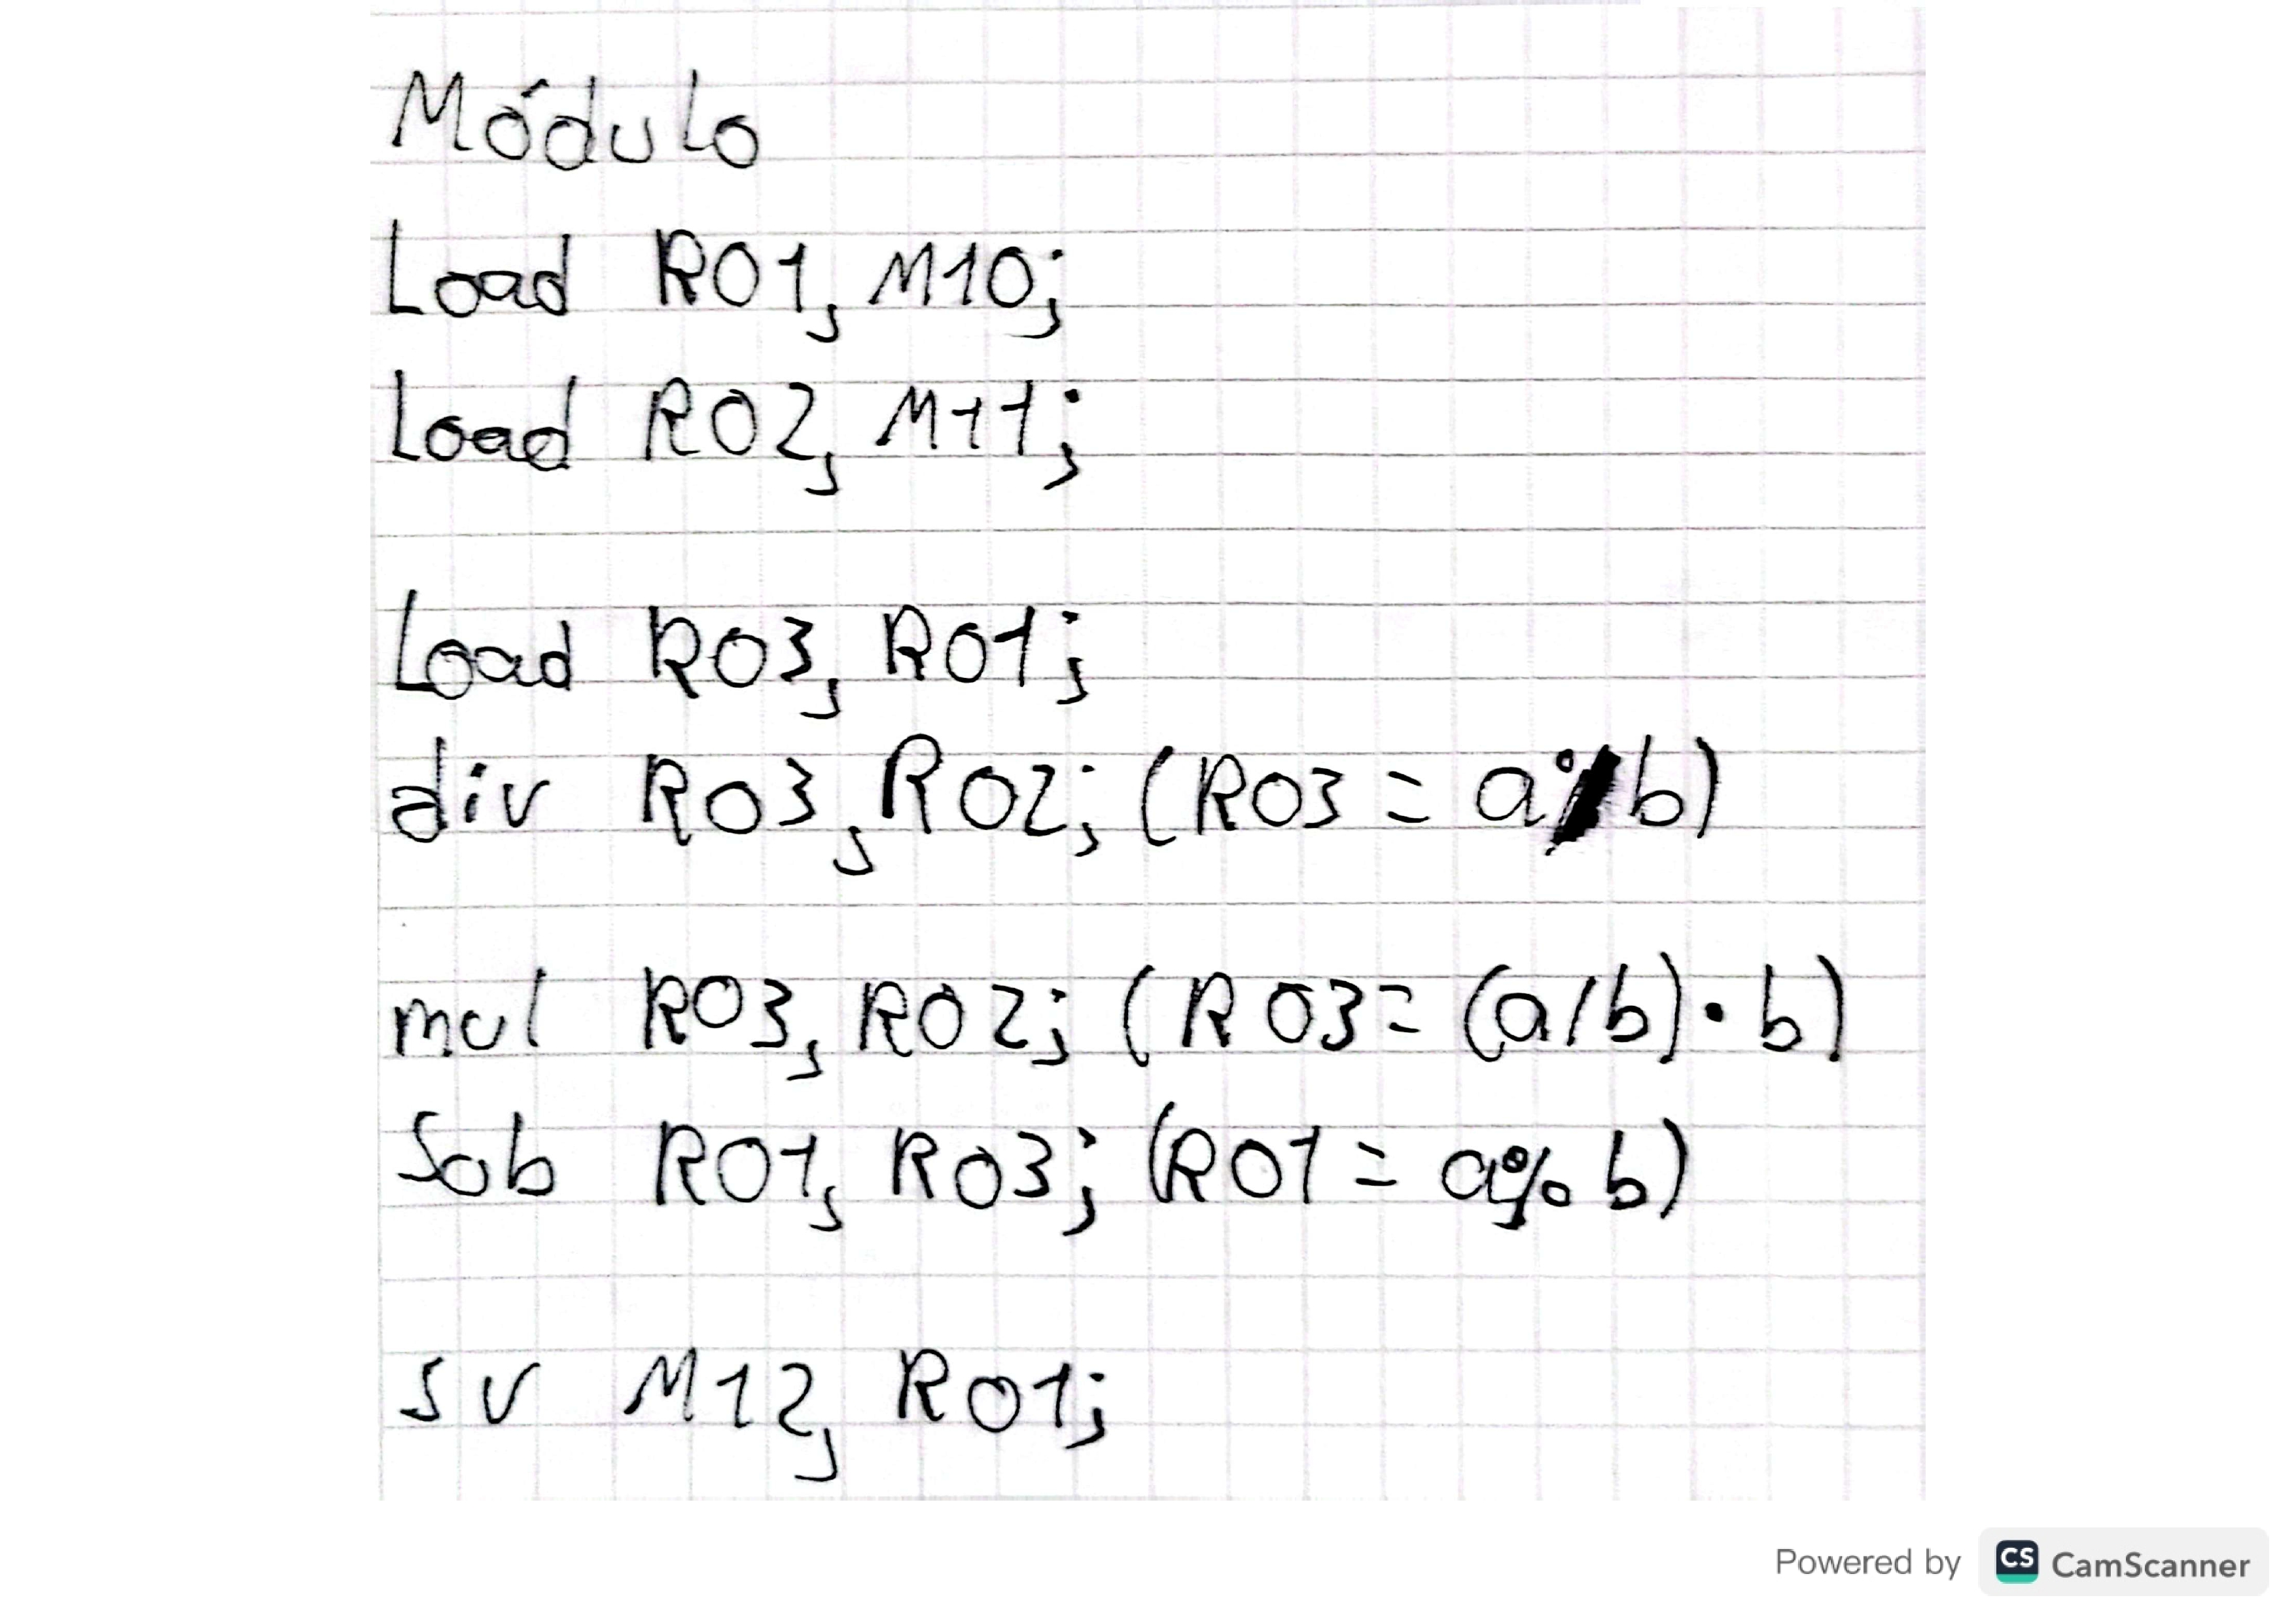 Módulo
Load R01, M10;
Load R02, M11;
Load R03, R01;
div R03, R02; (R03 = a/b)
mul R03, R02; (R03 = (a/b) · b)
Sub R01, R03; (R01 = a% b)
sv M12, R01;
Powered by CS CamScanner